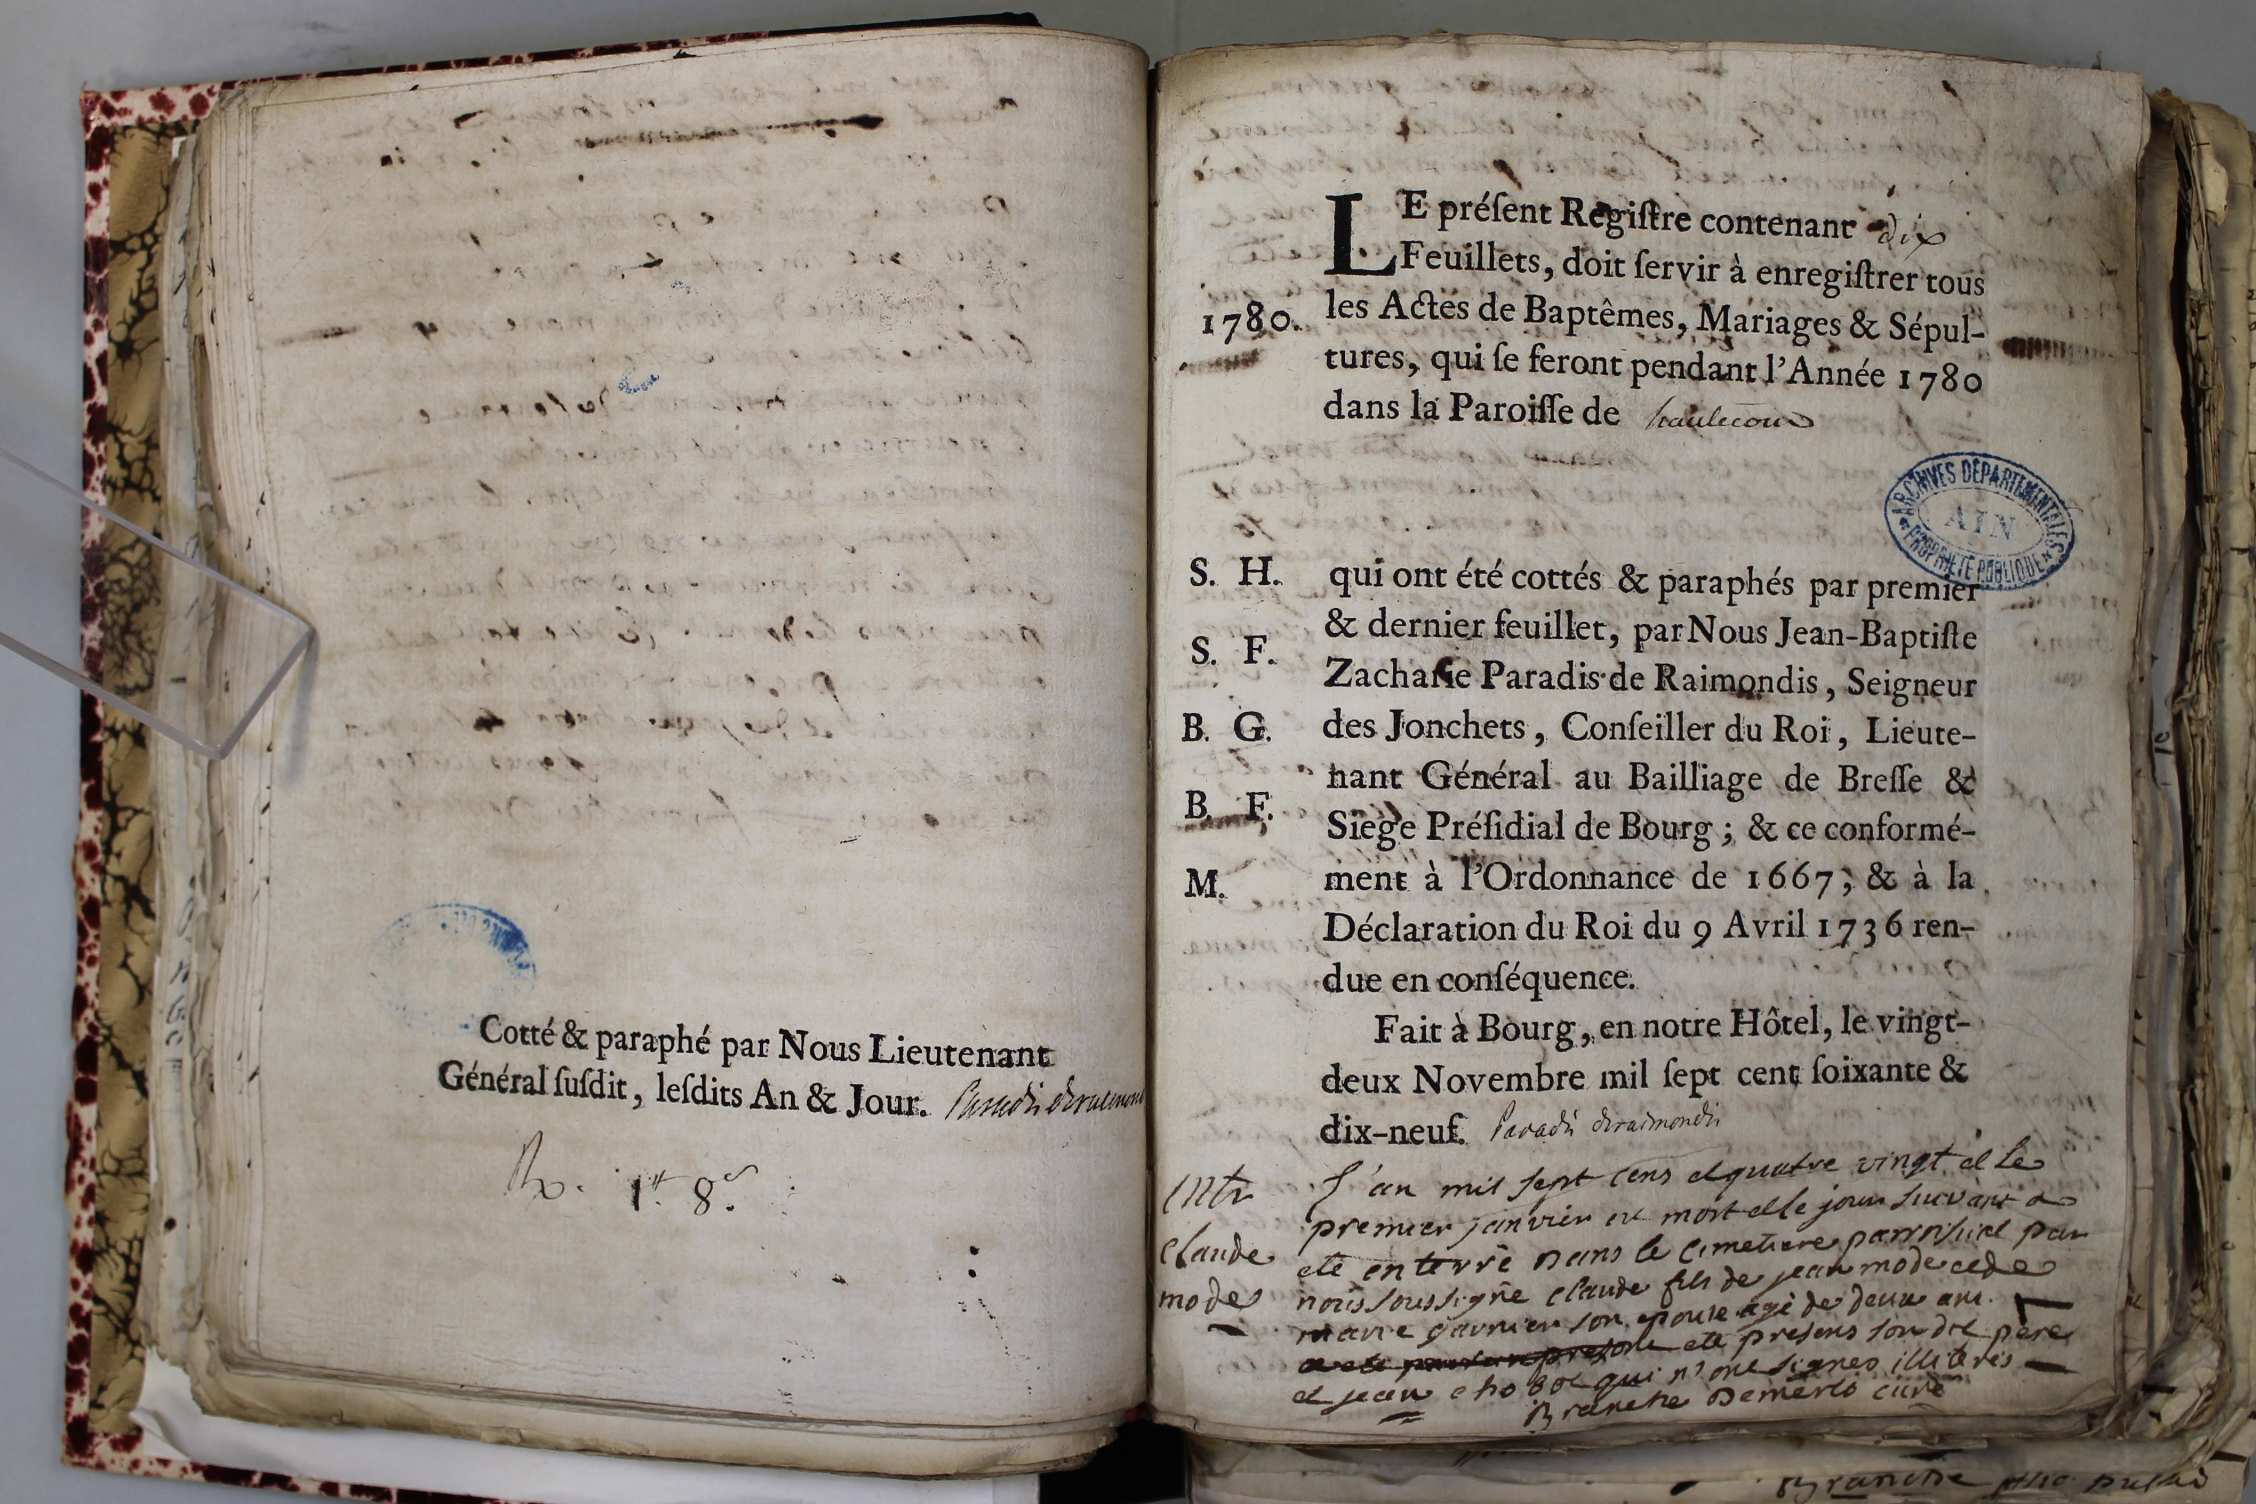 Cotté & paraphé par Nous Lieutenant
Général ſuſdit, leſdits An & Jour. Paradis deraimondi
LE préſent Regiſtre contenant dix
Feuillets, doit ſervir à enregiſtrer tous
1780. les Actes de Baptêmes, Mariages & Sépul-
tures, qui ſe feront pendant l'Année 1780
dans la Paroiſſe de hautecour
ARCHIVES DÉPARTEMENTALES
AIN
PROPRIÉTÉ PUBLIQUE
S. H. qui ont été cottés & paraphés par premier
& dernier feuillet, par Nous Jean-Baptiſte
S. F. Zacharie Paradis de Raimondis, Seigneur
B. G. des Jonchets, Conſeiller du Roi, Lieute-
nant Général au Bailliage de Breſſe &
B. F. Siege Préſidial de Bourg; & ce conformé-
M. ment à l'Ordonnance de 1667; & à la
Déclaration du Roi du 9 Avril 1736 ren-
due en conſéquence.
Fait à Bourg, en notre Hôtel, le vingt-
deux Novembre mil ſept cent ſoixante &
dix-neuf. Paradis deraimondis
entr
claude
mode
L'an mil sept cens et quatre vingt et le
premier janvier est mort et le jour suivant a
ete enterré dans le cimetiere parroisial par
nous soussigné claude fils de jean mode et de
marie garnier son epouse agé de deux ans
ete presens son dit pere
et jean qui n'ont signes illiteres
Branche Demerlo curé
Branche